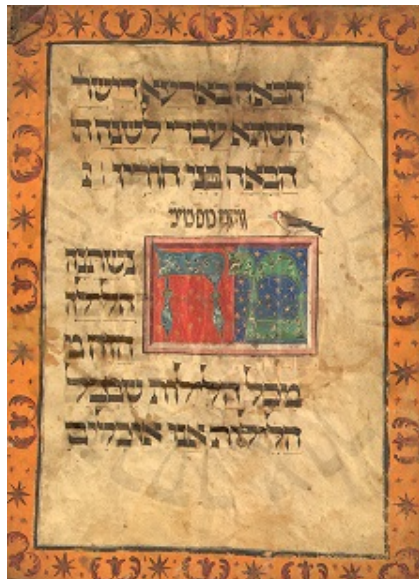 הבאה בארעא דישר
השתא עבדי לשנה ה
הבאה בני חורין
מה נשתנה
הלילה
הזה מ
מכל הלילות שבכל
הלילות אנו אוכלים